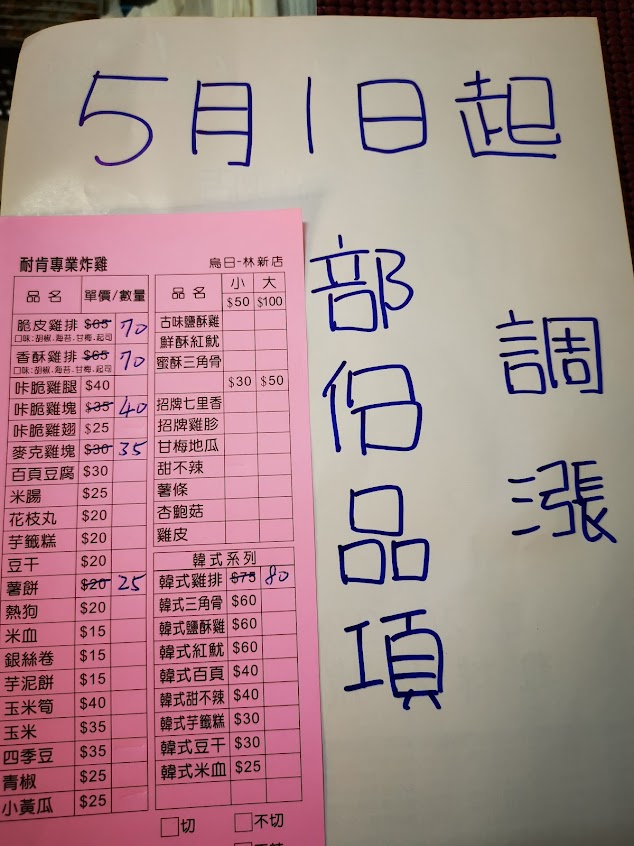 5月1日起
部侶品項
調漲
耐肯專業炸雞 烏日-林新店
品名 單價/數量
脆皮雞排 $65 70
口味:胡椒.海苔.甘梅.起司
香酥雞排 $65 70
口味:胡椒.海苔.甘梅.起司
咔脆雞腿 $40
咔脆雞塊 $35 40
咔脆雞翅 $25
麥克雞塊 $30 35
百頁豆腐 $30
米腸 $25
花枝丸 $20
芋籤糕 $20
豆干 $20
薯餅 $20 25
熱狗 $20
米血 $15
銀絲卷 $15
芋泥餅 $15
玉米筍 $40
玉米 $35
四季豆 $35
青椒 $25
小黃瓜 $25
品名 小 大
$50 $100
古味鹽酥雞
鮮酥紅魷
蜜酥三角骨
$30 $50
招牌七里香
招牌雞胗
甘梅地瓜
甜不辣
薯條
杏鮑菇
雞皮
韓式系列
韓式雞排 $75 80
韓式三角骨 $60
韓式鹽酥雞 $60
韓式紅魷 $60
韓式百頁 $40
韓式甜不辣 $40
韓式芋籤糕 $30
韓式豆干 $30
韓式米血 $25
切 不切